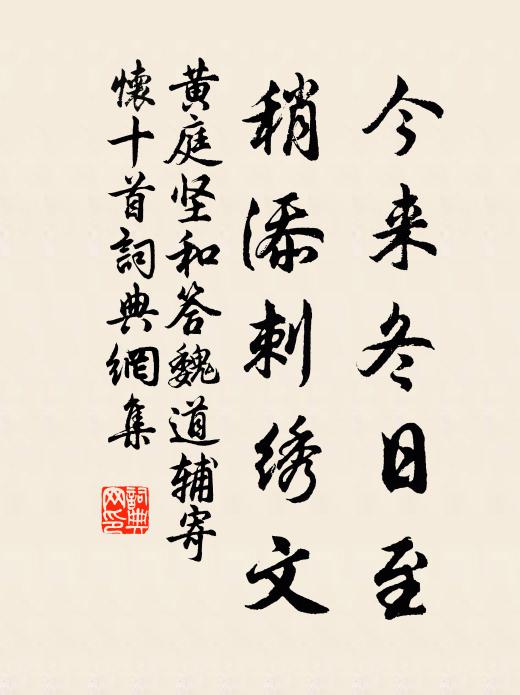 今来冬日至
稍添刺绣文
黄庭坚和答魏道辅寄
懷十首詞典網集
詞典网印